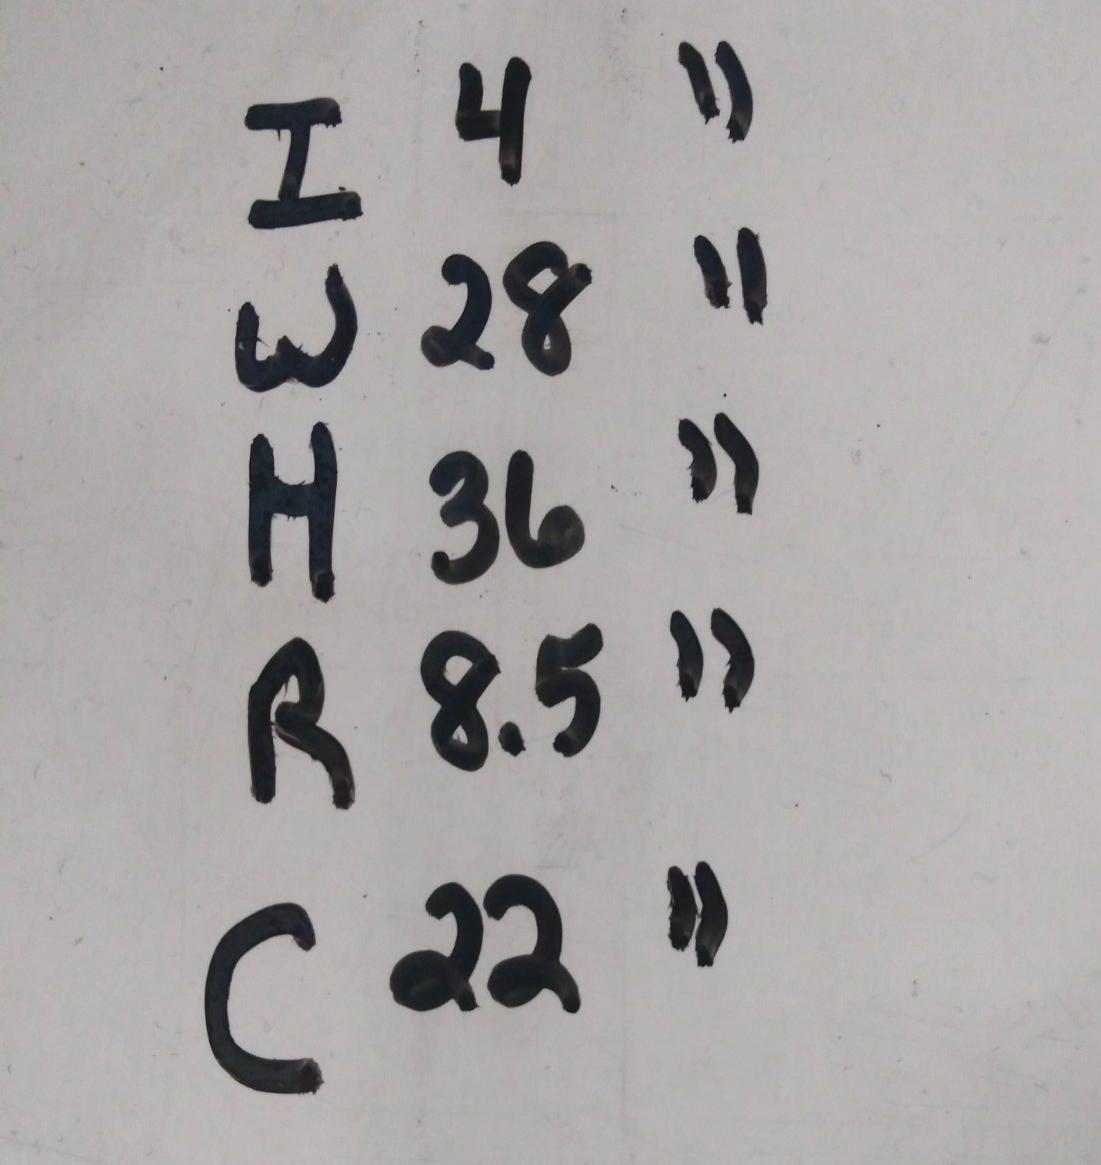 I 4 "
W 28 "
H 36 "
R 8.5 "
C 22 "